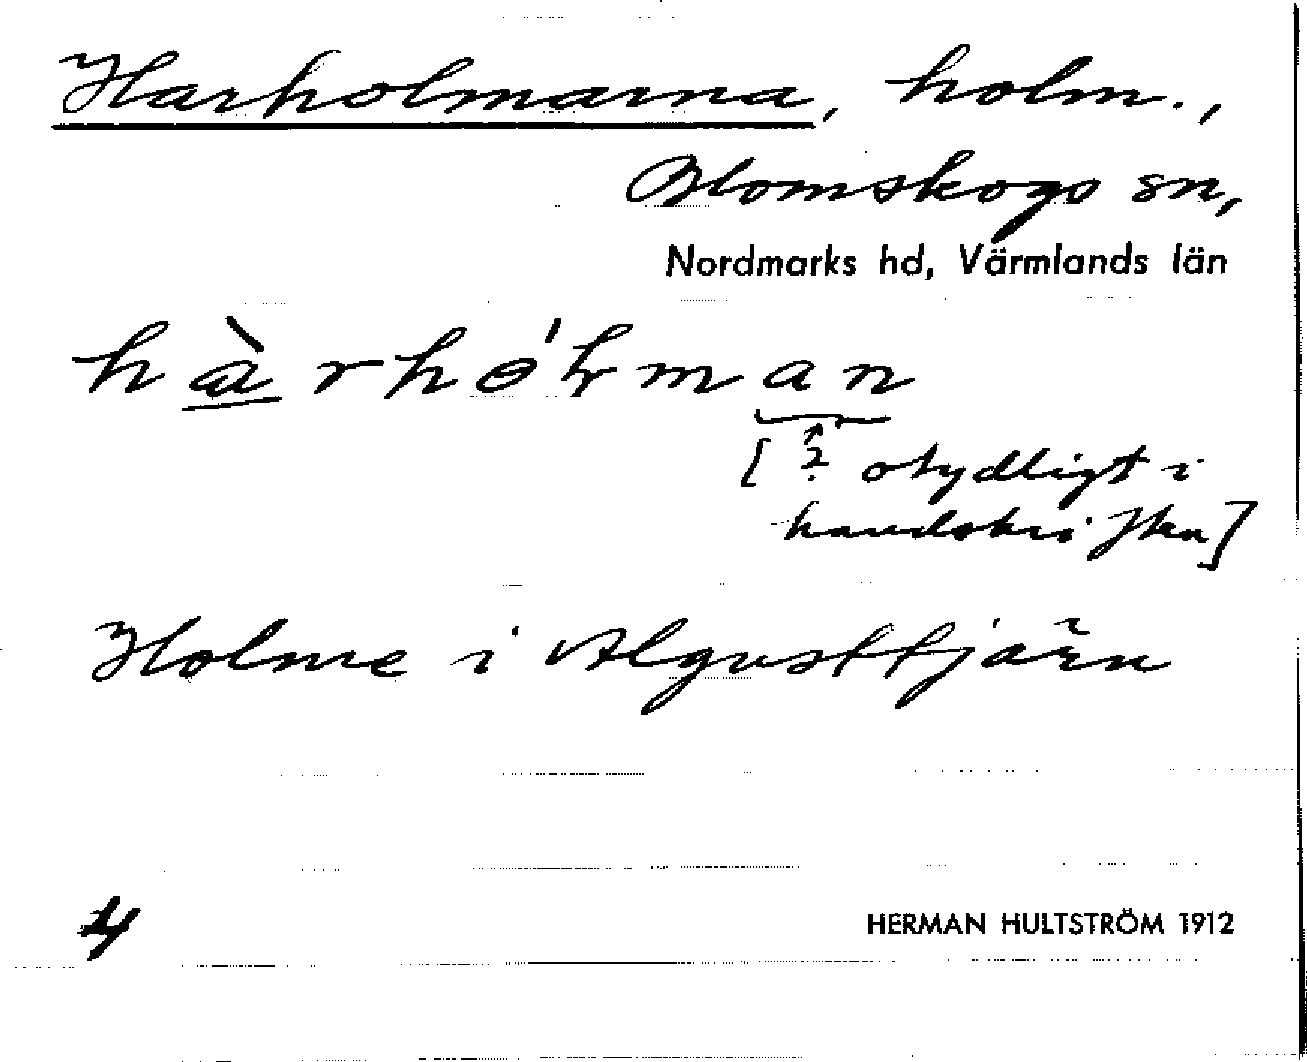 Harholmarna, holm.,
Blomskogs sn,
Nordmarks hd, Värmlands län
hàrhɵ́ɫman
[? otydligt i
handskriften]
Holme i Algusttjärn
4
HERMAN HULTSTRÖM 1912